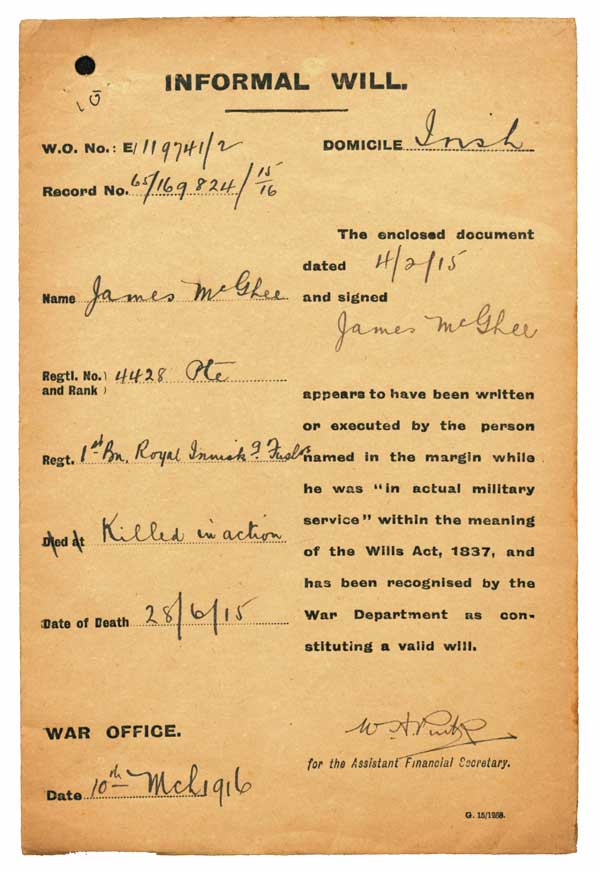 INFORMAL WILL.
W.O. No.: E/119741/2
DOMICILE Irish
Record No. 65/169824/15/16
The enclosed document
dated 4/2/15
Name James McGhee
and signed
James McGhee
Regtl. No. and Rank 4428 Pte
appears to have been written
or executed by the person
Regt. 1st Bn. Royal Innisk g Fuslrs
named in the margin while
he was "in actual military
service" within the meaning
Died at Killed in action
of the Wills Act, 1837, and
has been recognised by the
Date of Death 28/6/15
War Department as con-
stituting a valid will.
WAR OFFICE.
for the Assistant Financial Secretary.
Date 10th Mch 1916
G. 15/1958.